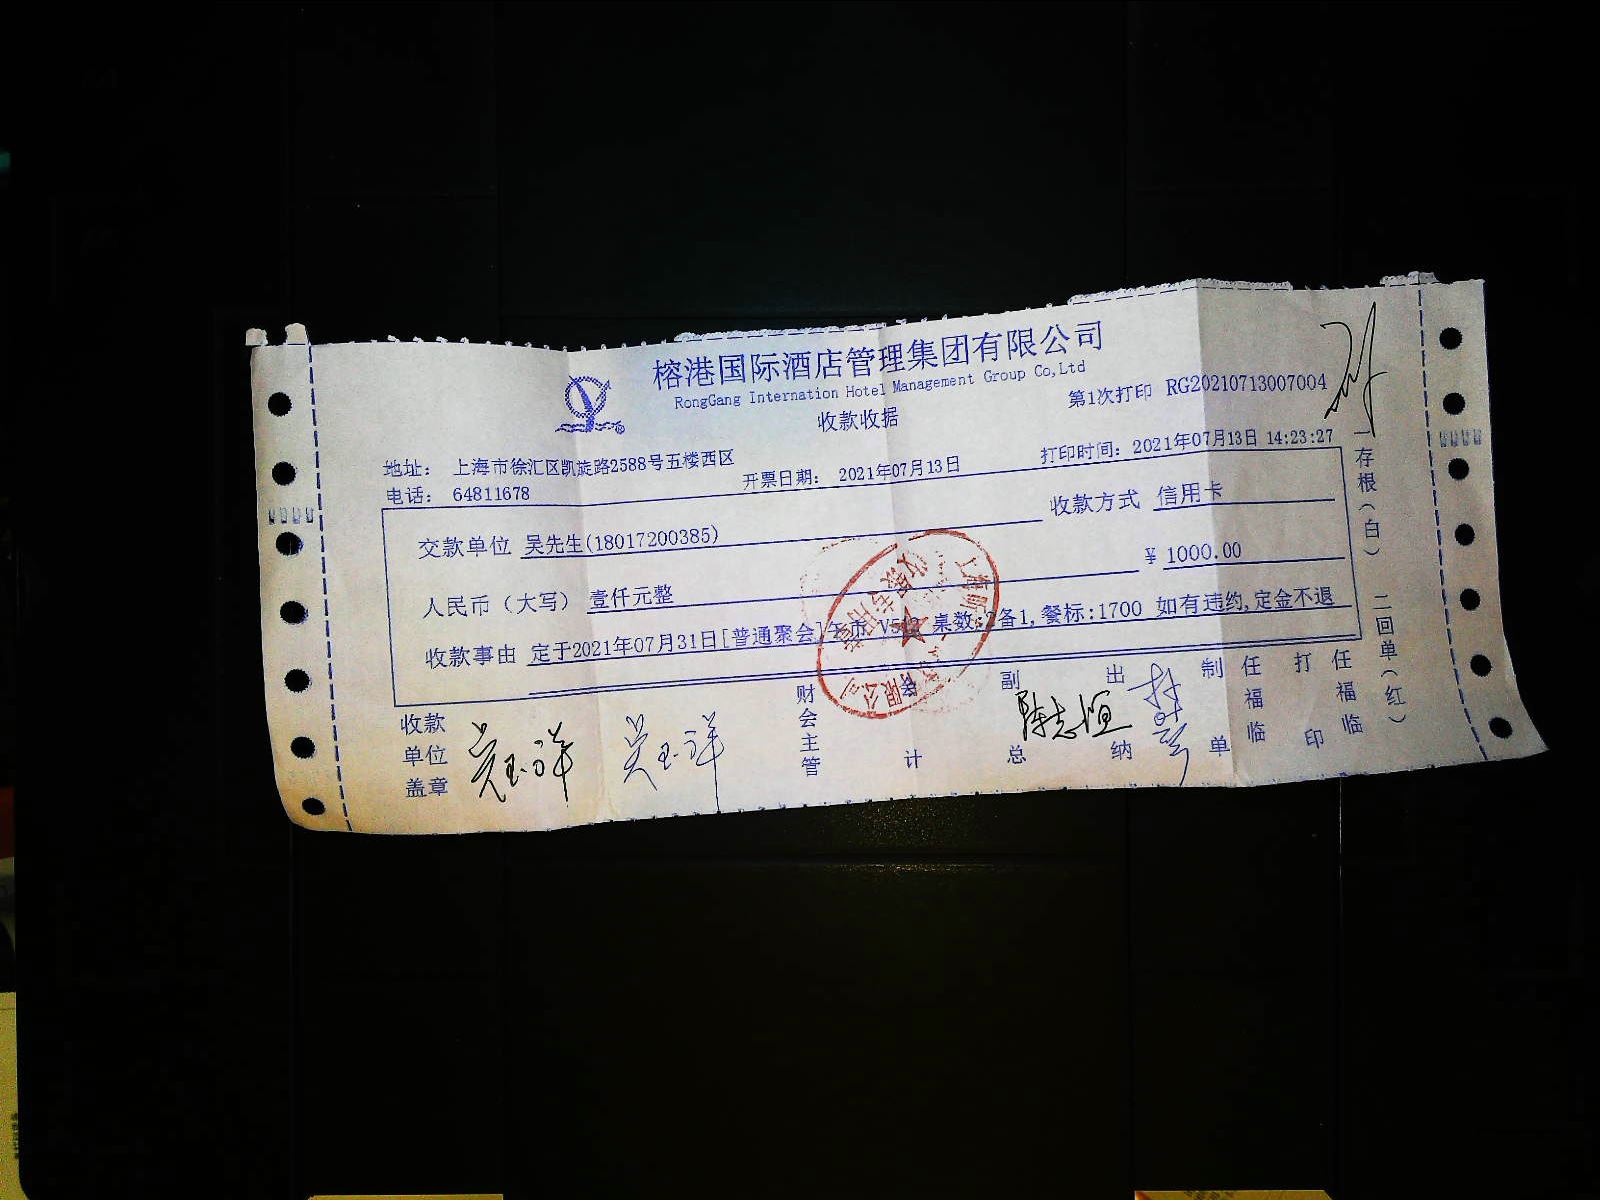 榕港国际酒店管理集团有限公司
RongGang Internation Hotel Management Group Co,Ltd
收款收据
第1次打印 RG20210713007004
地址: 上海市徐汇区凯旋路2588号五楼西区
电话: 64811678
开票日期: 2021年07月13日
打印时间: 2021年07月13日 14:23:27
交款单位 吴先生(18017200385)
收款方式 信用卡
人民币（大写） 壹仟元整
¥ 1000.00
收款事由 定于2021年07月31日[普通聚会] 桌数:2备1,餐标:1700 如有违约,定金不退
收款单位盖章
财会主管
计
副总
陈志恒
出纳
制单
任福临
打印
任福临
一存根（白） 二回单（红）